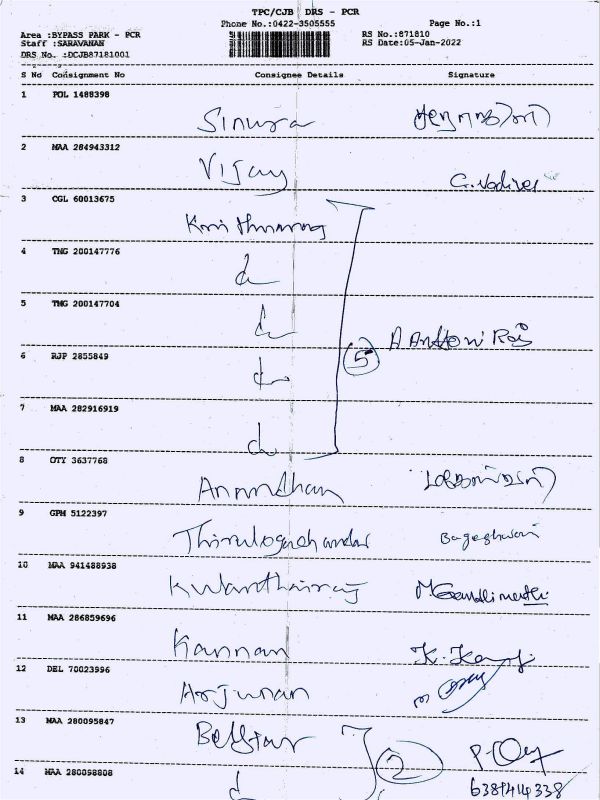 TPC/CJB DRS - PCR
Phone No.:0422-3505555 Page No.:1
Area :BYPASS PARK - PCR RS No.:871810
Staff :SARAVANAN RS Date:05-Jan-2022
DRS No. :DCJB87181001
S No Consignment No Consignee Details Signature
1 POL 1488398
Sinusa
2 MAA 284943312
Vijay G. Vadivel
3 CGL 60013675
4 TMG 200147776
5 TMG 200147704
A Anthoni Raj
6 RJP 2855849 5
7 MAA 282916919
8 OTY 3637768
Anandhan
9 GPM 5122397
Thirulogachandar Bageshwari
10 MAA 941488938
Kulanthairaj M Gandhimathi
11 MAA 286859696
Kannan K. Kanji
12 DEL 70023996
Arjunan
13 MAA 280095847
2
14 MAA 280098808